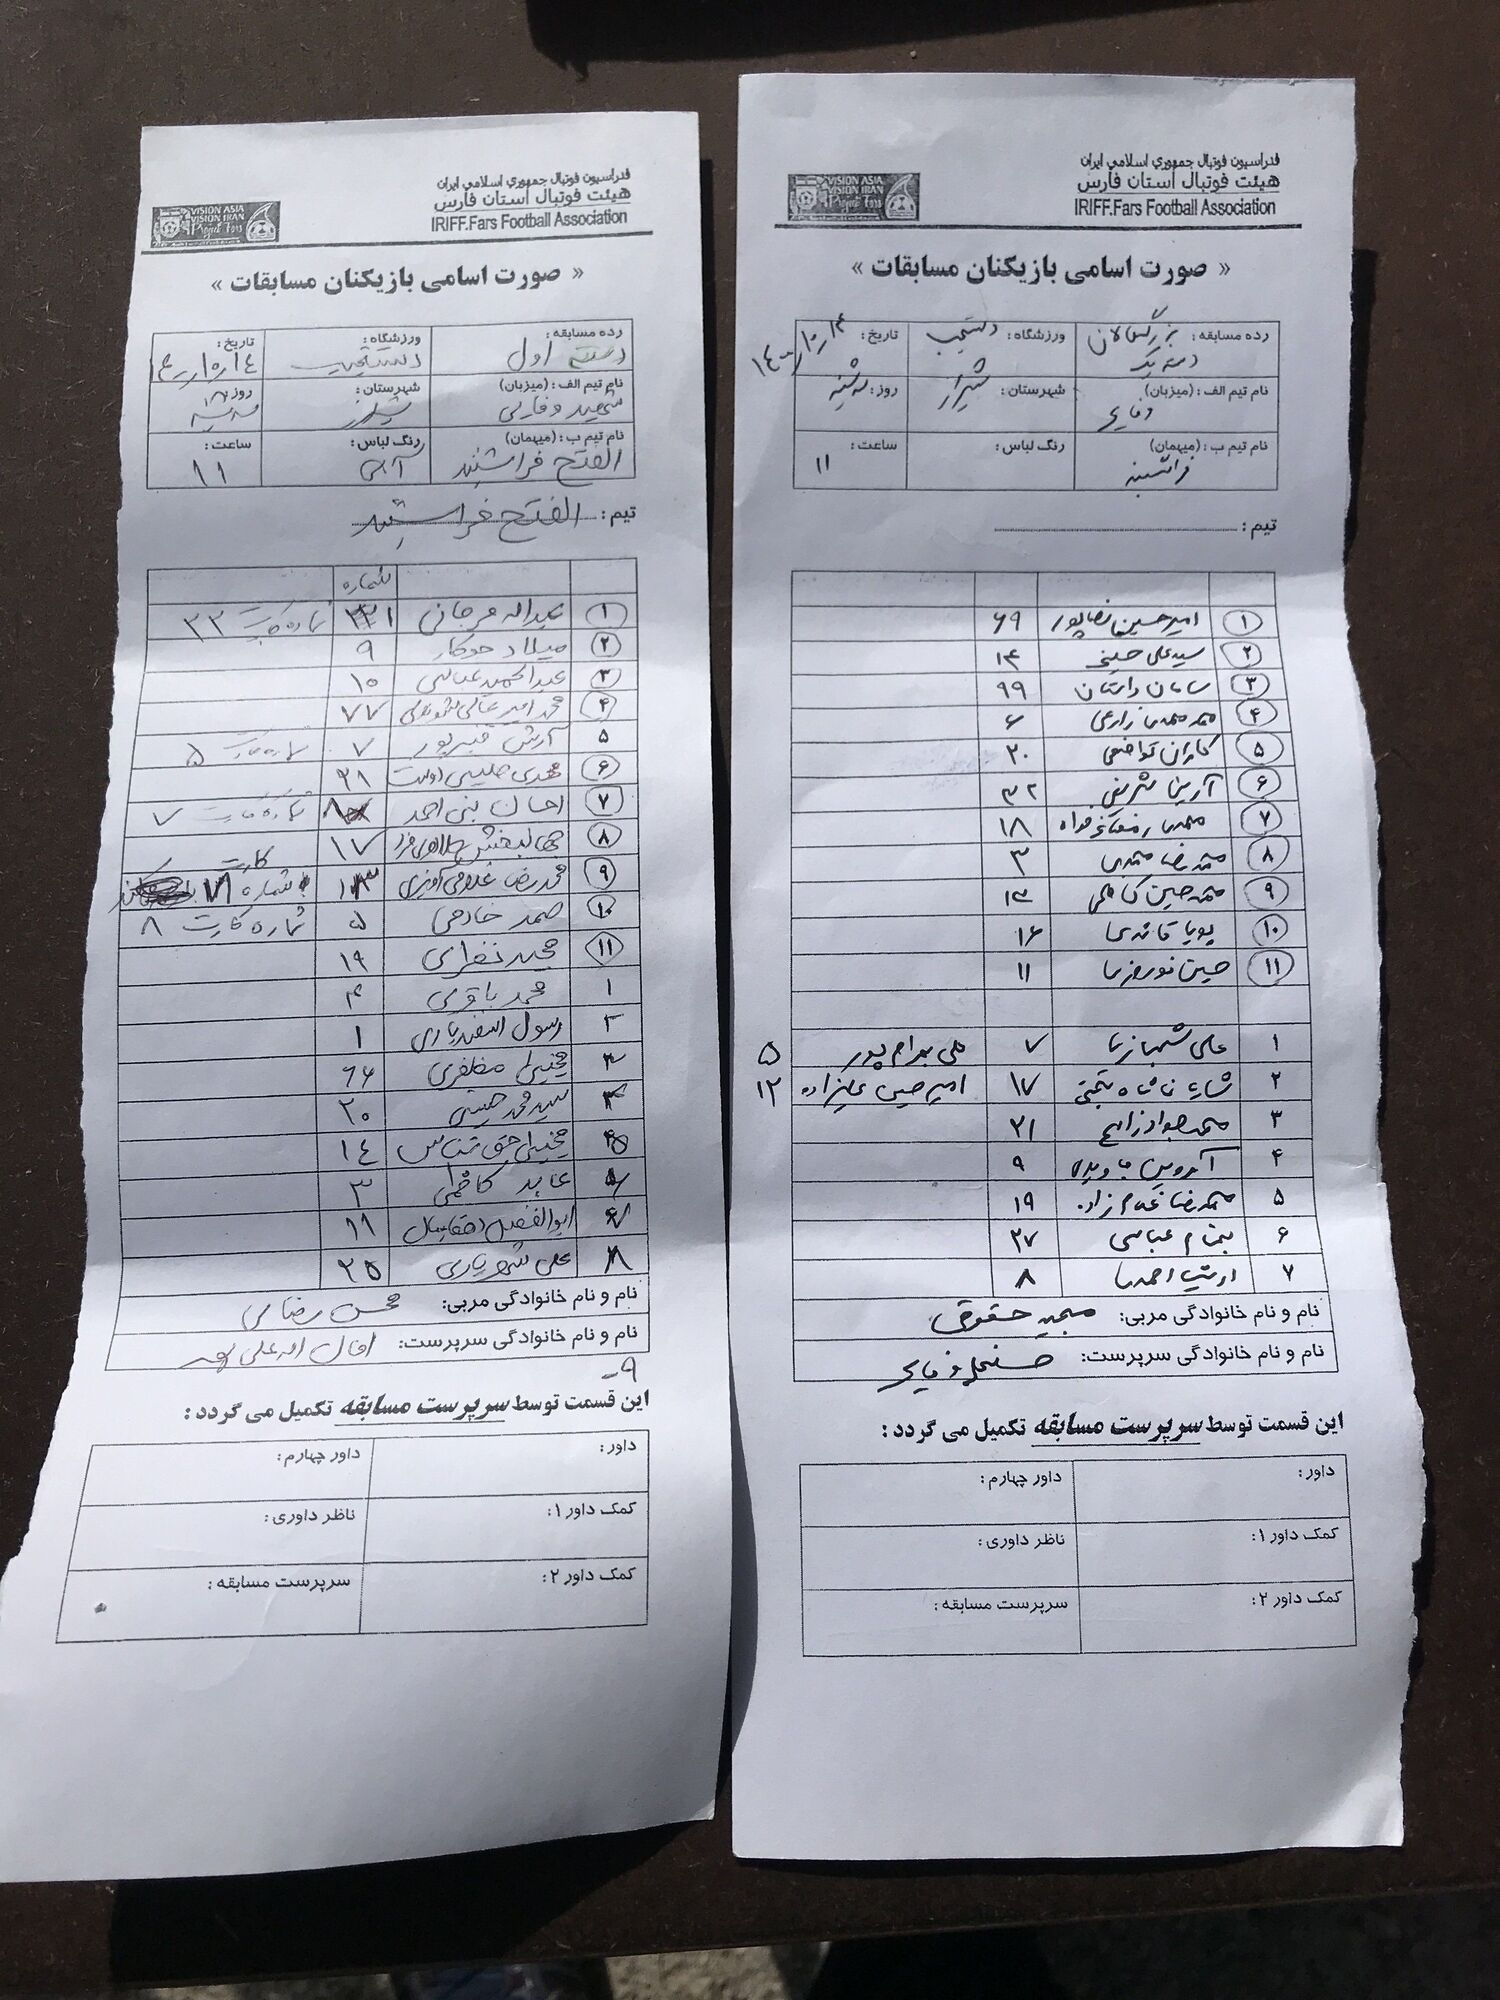 فدراسیون فوتبال جمهوری اسلامی ایران
هیئت فوتبال استان فارس
IRIFF.Fars Football Association
VISION ASIA
VISION IRAN
Project Fars
« صورت اسامی بازیکنان مسابقات »
رده مسابقه : بزرگسالان دسته یک
ورزشگاه : دستغیب
تاریخ :
نام تیم الف : (میزبان) وفایی
شهرستان : شیراز
روز : سه شنبه
نام تیم ب : (میهمان) فراشبند
رنگ لباس :
ساعت : ۱۱
تیم :
۱ امیرحسین رضاپور ۶۹
۲ سید علی حسینی ۱۴
۳ سامان داستان ۹۹
۴ محمدمهدی زارعی ۶
۵ کامران تواضعی ۲۰
۶ آرمین شریفی ۳۲
۷ ۱۸
۸ محمدرضا محمدی ۳
۹ محمدحسین کاظمی
۱۰ پویا قائدی ۱۶
۱۱ حسین نوروزی ۱۱
۱ علی شهبازی ۷ علی بهرام پور ۵
۲ شایان شاه بختی ۱۷ امیرحسین علیزاده ۱۲
۳ محمدجواد زارع ۲۱
۴ ۹
۵ محمدرضا غلام زاده ۱۹
۶ بهنام عباسی ۲۷
۷ احمدی ۸
نام و نام خانوادگی مربی: مجید حقوقی
نام و نام خانوادگی سرپرست: وفایی
این قسمت توسط سرپرست مسابقه تکمیل می گردد :
داور:
داور چهارم:
کمک داور ۱:
ناظر داوری:
کمک داور ۲:
سرپرست مسابقه :
فدراسیون فوتبال جمهوری اسلامی ایران
هیئت فوتبال استان فارس
IRIFF.Fars Football Association
VISION ASIA
VISION IRAN
Project Fars
« صورت اسامی بازیکنان مسابقات »
رده مسابقه : دسته اول
ورزشگاه : دستغیب
تاریخ :
نام تیم الف : (میزبان) شهید وفایی
شهرستان : شیراز
روز : سه شنبه
نام تیم ب : (میهمان) الفتح فراشبند
رنگ لباس : آبی
ساعت : ۱۱
تیم : الفتح فراشبند
شماره
۱ عبداله مرجانی شماره کارت ۳۳
۲ میلاد جوکار ۹
۳ عبدالحمید عباسی ۱۰
۴ محمد امیر ۷۷
۵ آرش قنبرپور ۷ شماره کارت ۵
۶ مهدی ۲۱
۷ احسان بنی احمد شماره کارت ۷
۸ جهانبخش ۱۷
۹ محمدرضا غلامی کارت شماره
۱۰ صمد خادمی ۵ شماره کارت ۸
۱۱ مجید نظری ۱۹
۱ محمد باقری ۴
۲ رسول اسفندیاری ۱
۳ مجتبی مظفری ۶۶
سید محمد حسینی ۲۰
مجتبی حق شناس ۱۴
عابد کاظمی ۳
ابوالفضل ۱۱
علی شهریاری ۲۵
نام و نام خانوادگی مربی: محسن رضایی
نام و نام خانوادگی سرپرست:
این قسمت توسط سرپرست مسابقه تکمیل می گردد :
داور:
داور چهارم:
کمک داور ۱:
ناظر داوری:
کمک داور ۲:
سرپرست مسابقه :